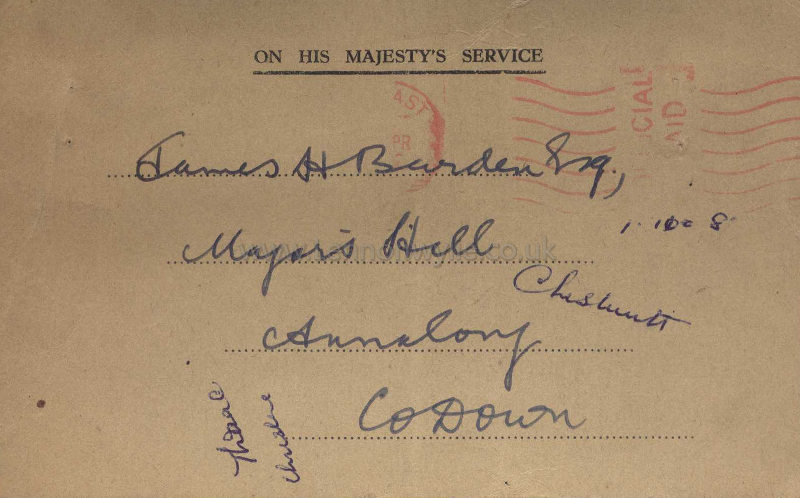 ON HIS MAJESTY'S SERVICE
AST
PR
CIAL
AID
James H Burden Esq.,
1.10 8
Major's Hill
Chestnutt
Annalong
Co Down